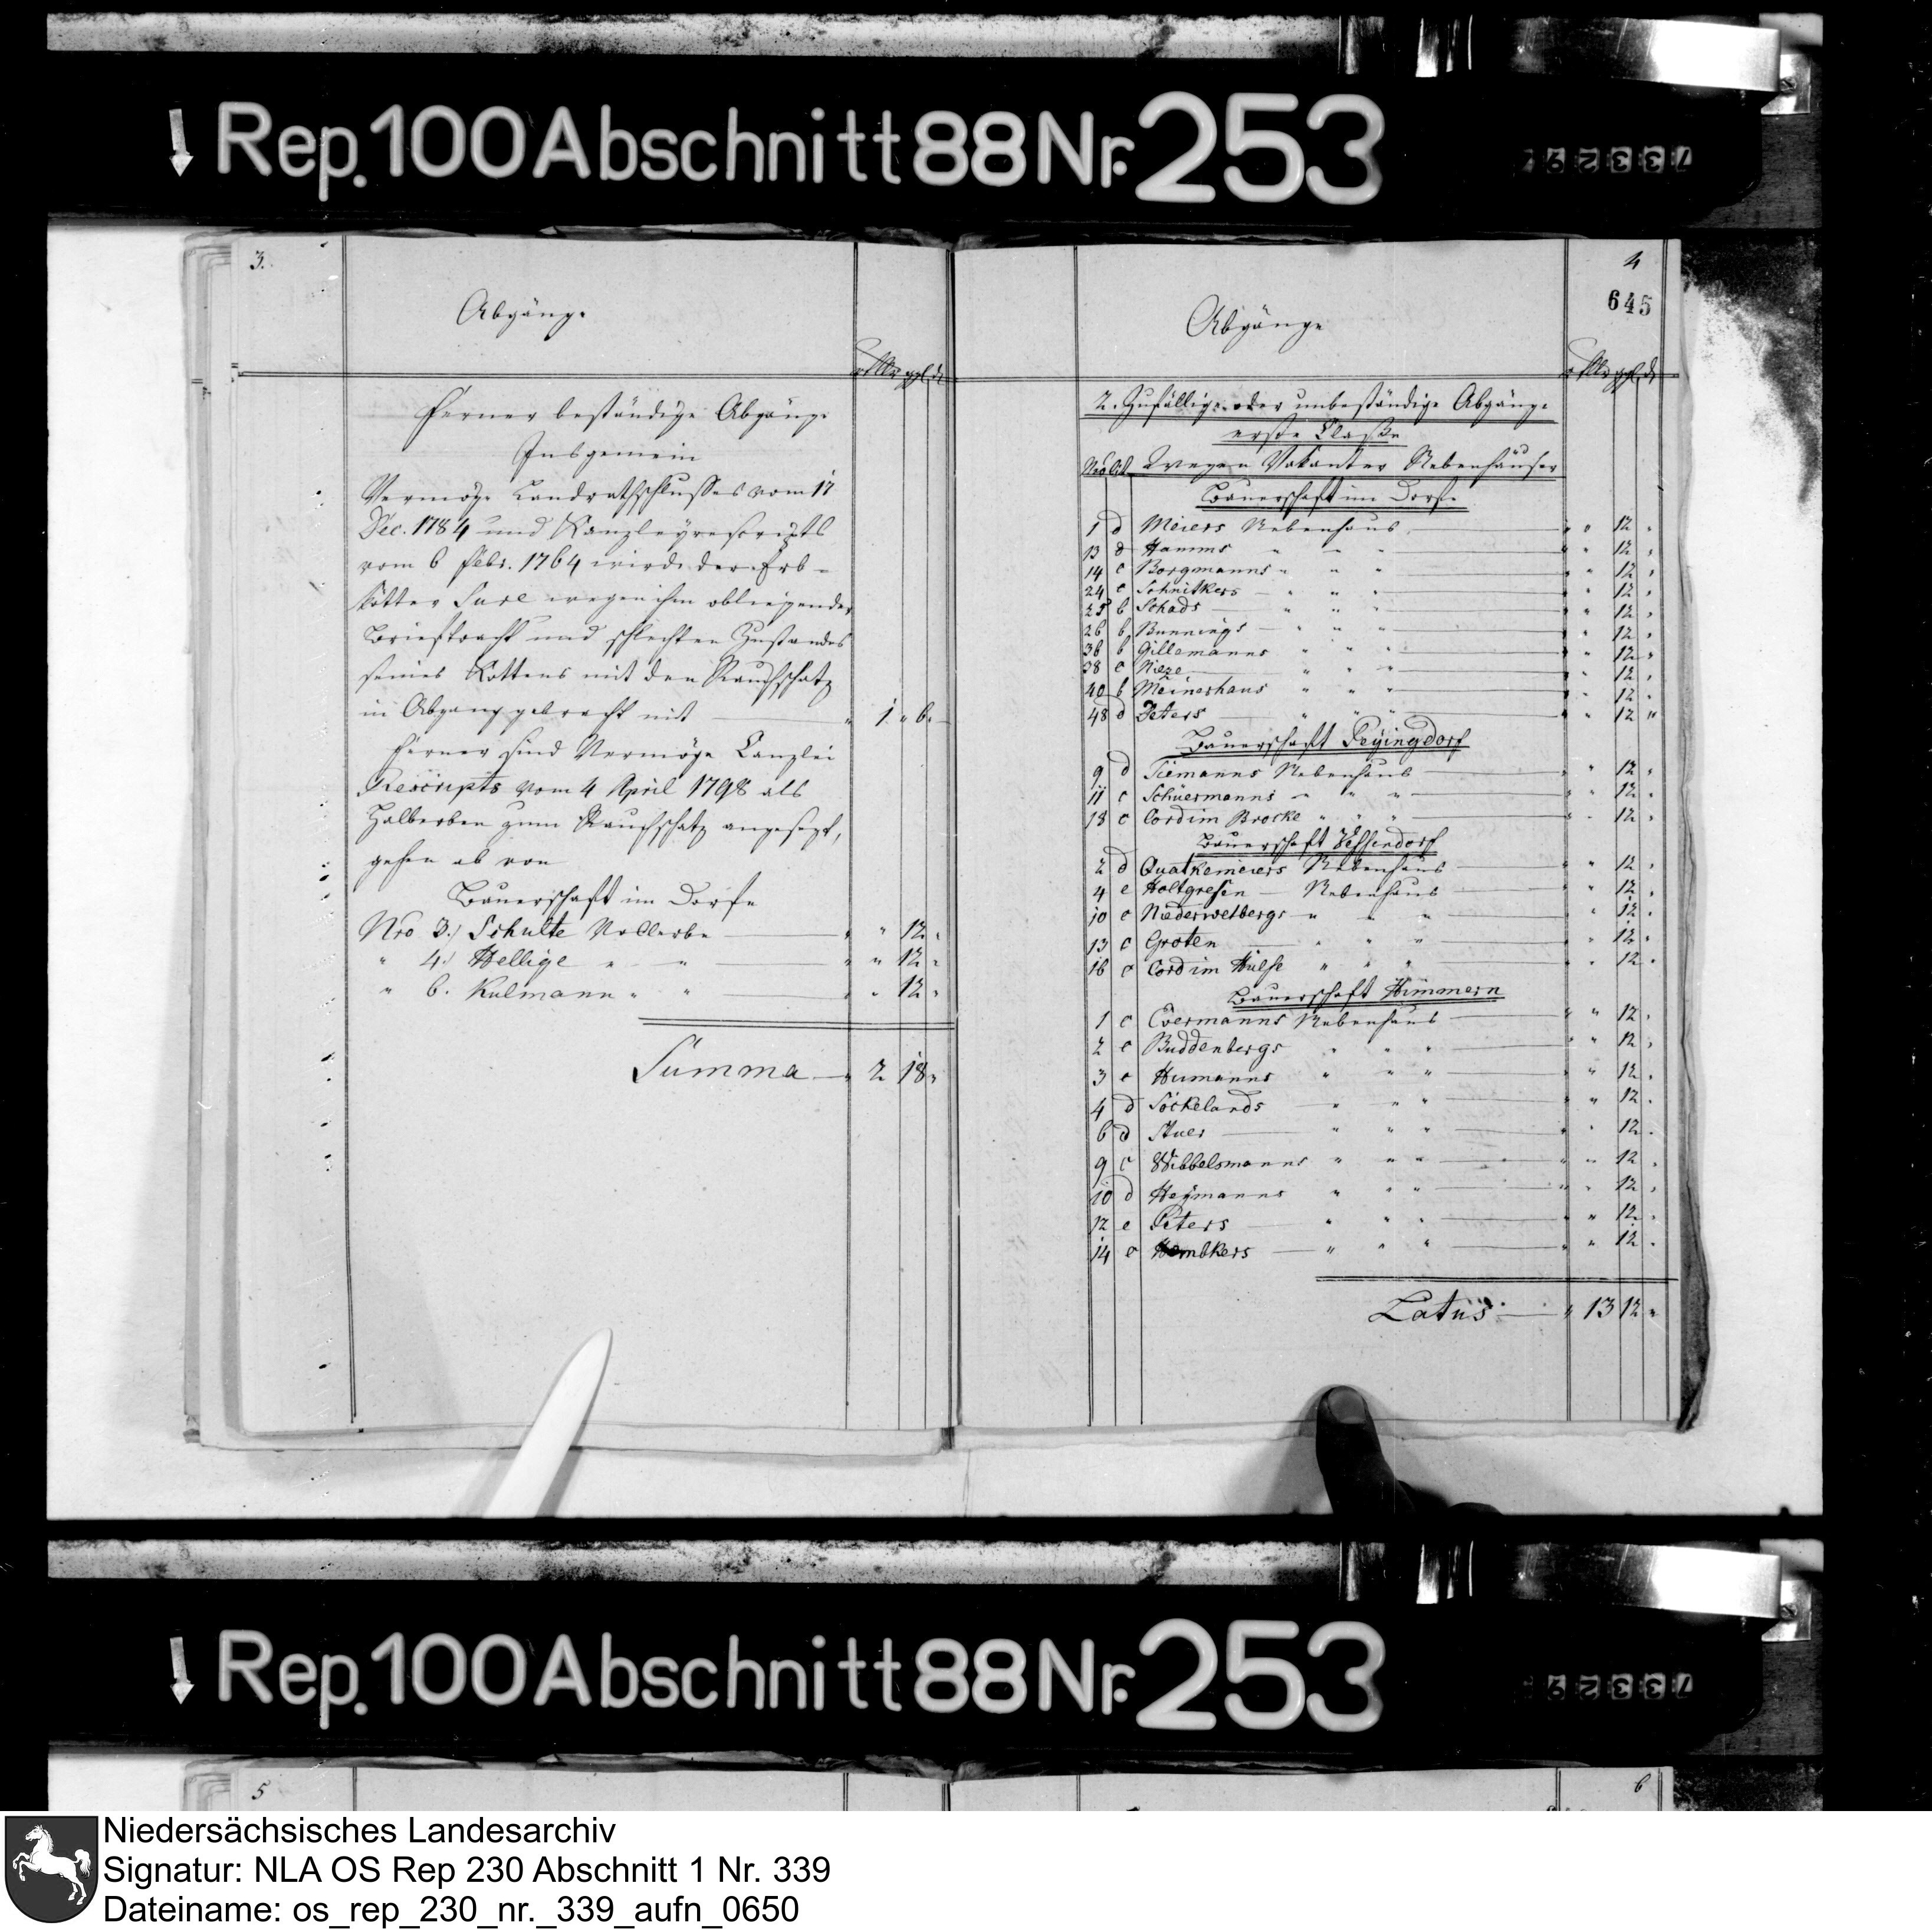 Rep. 100 Abschnitt 88 Nr. 253
3.
Abgänge
rthlr ggl. d.
Ferner beständige Abgänge
Insgemein
Vermöge Landrathschlusses vom 17
Dec. 1784 und Kanzleyrescripts
vom 6 Febr. 1764 wird der Erb-
kötter Sure wegen ihm obliegender
Brieftracht und schlechten Zustandes
seines Kottens mit den Rauchschatz
in Abgang gebracht mit " 1 " 6 "
Ferner sind Vermöge Canzlei
Rescripts vom 4 April 1798 als
Halberben zum Rauchschatz angesezt,
gehen ab von
Bauerschaft im Dorfe
Nro 3.) Schulte Vollerbe " " 12 "
" 4.) Hellige " " " " 12 "
" 6. Kulmann " " " " 12 "
Summa " 2 18 "
4
645
Abgänge
rthlr ggl. d.
2. Zufällige oder unbeständige Abgänge
erste Classe
Nro Lit. Wegen Vakanter Nebenhäuser
Bauerschaft im Dorfe
1 d Meiers Nebenhaus " " 12 "
13 d Hamms " " " " " 12 "
14 c Borgmanns " " " " " 12 "
24 c Schnitkers " " " " " 12 "
25 b Schads " " " " " 12 "
26 b Bunnings " " " " " 12 "
36 b Gillamanns " " " " " 12 "
38 c Nieze " " " " " 12 "
40 b Meinershaus " " " " " 12 "
48 d Peters " " " " " 12 "
Bauerschaft Peyingdorf
9 d Tiemanns Nebenhaus " " 12 "
11 c Schüermanns " " " " " 12 "
18 c Cord im Brocke " " " " " 12 "
Bauerschaft Uessendorf
2 d Quatkemeiers Nebenhaus " " 12 "
4 e Holtgresen Nebenhaus " " 12 "
10 c Niederwelbergs " " " " 12 "
13 c Groten " " " " 12 "
16 c Cord im Hülse " " " " 12 "
Bauerschaft Himmern
1 c Evermanns Nebenhaus " " 12 "
2 c Buddenbergs " " " " " 12 "
3 c Humanns " " " " " 12 "
4 d Söckelands " " " " " 12 "
6 d Stuer " " " " " 12 "
9 c Wibbelsmanns " " " " " 12 "
10 d Heymanns " " " " " 12 "
12 e Peters " " " " " 12 "
14 c " " " " " 12 "
Latus " 13 12 "
Rep. 100 Abschnitt 88 Nr. 253
5
6
Niedersächsisches Landesarchiv
Signatur: NLA OS Rep 230 Abschnitt 1 Nr. 339
Dateiname: os_rep_230_nr._339_aufn_0650